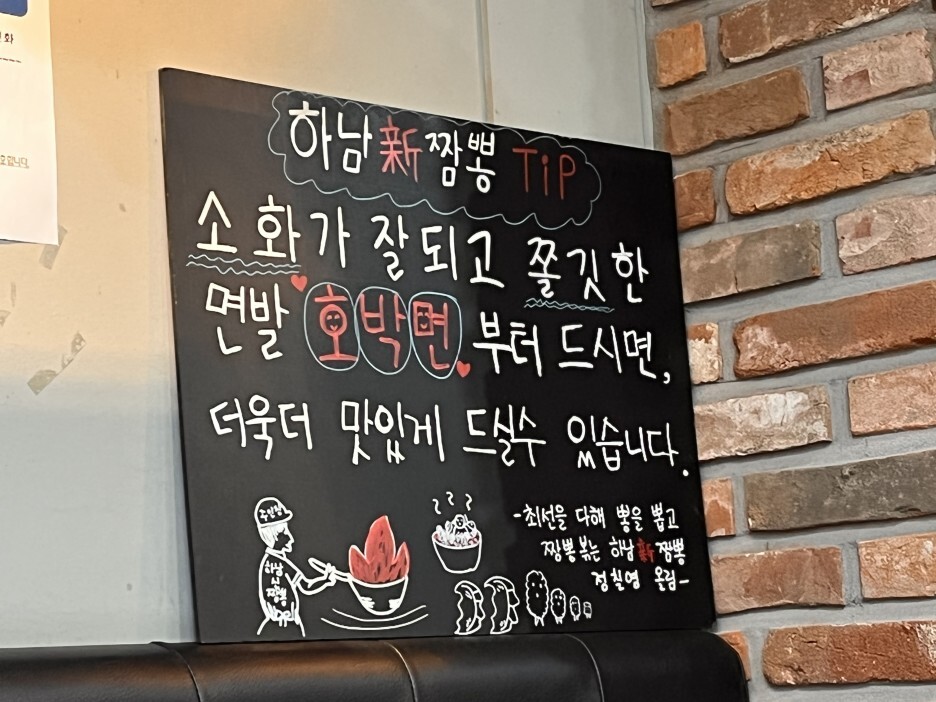 화
호합니다.
하남 新 짬뽕 TiP
소화가 잘되고 쫄깃한
면발 호박면 부터 드시면,
더욱더 맛있게 드실수 있습니다.
-최선을 다해 뽕을 뽑고
짬뽕 볶는 하남 新 짬뽕
정칠영 올림-
주인장
하남
신
짬뽕